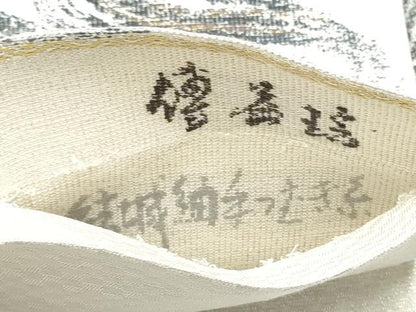 傅益瑶
結城紬手つむぎ糸